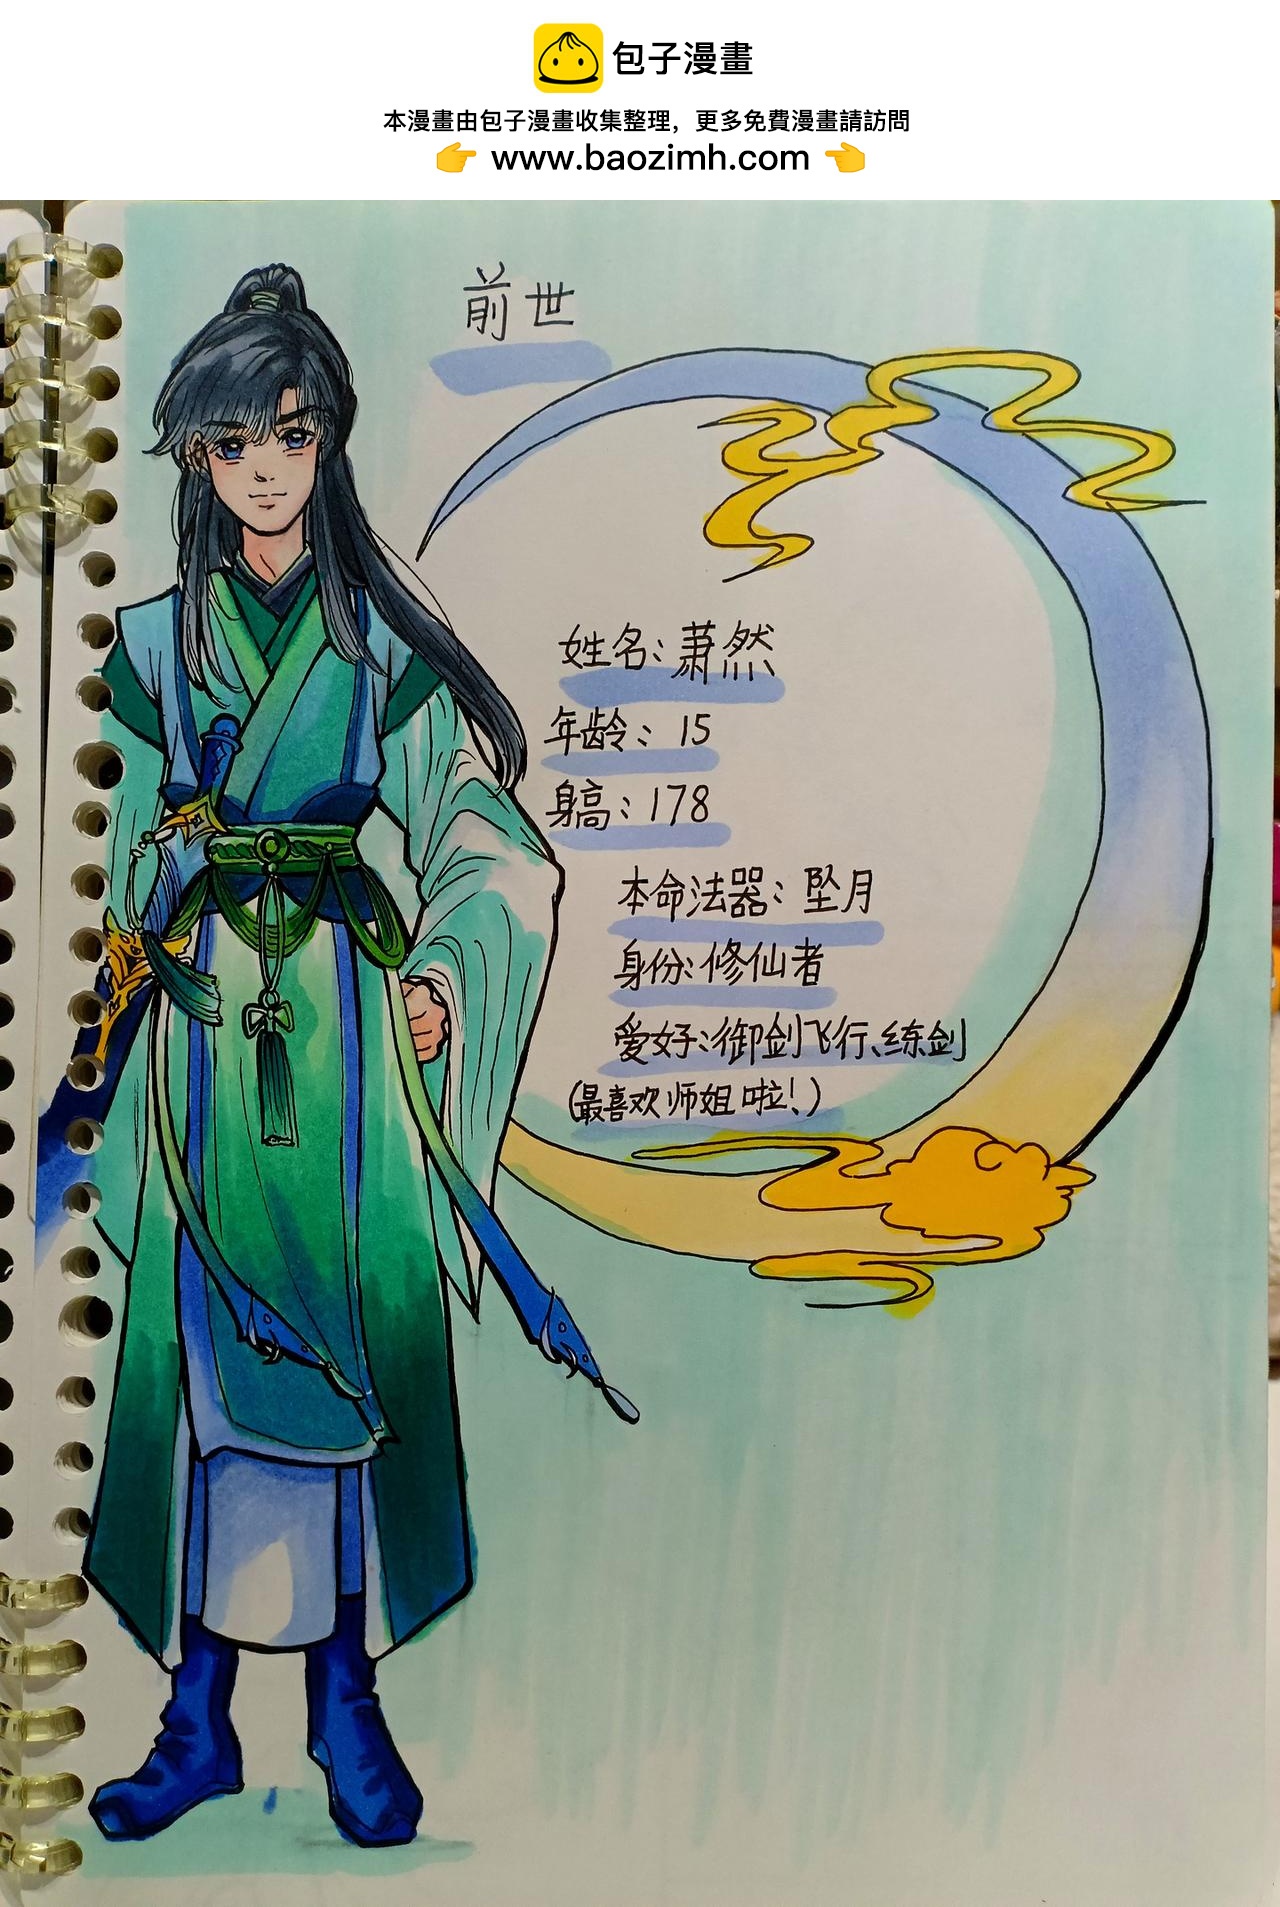 包子漫畫
本漫畫由包子漫畫收集整理，更多免費漫畫請訪問
👉 www.baozimh.com 👈
前世
姓名：萧然
年龄：15
身高：178
本命法器：坠月
身份：修仙者
爱好：御剑飞行、练剑
（最喜欢师姐啦！）